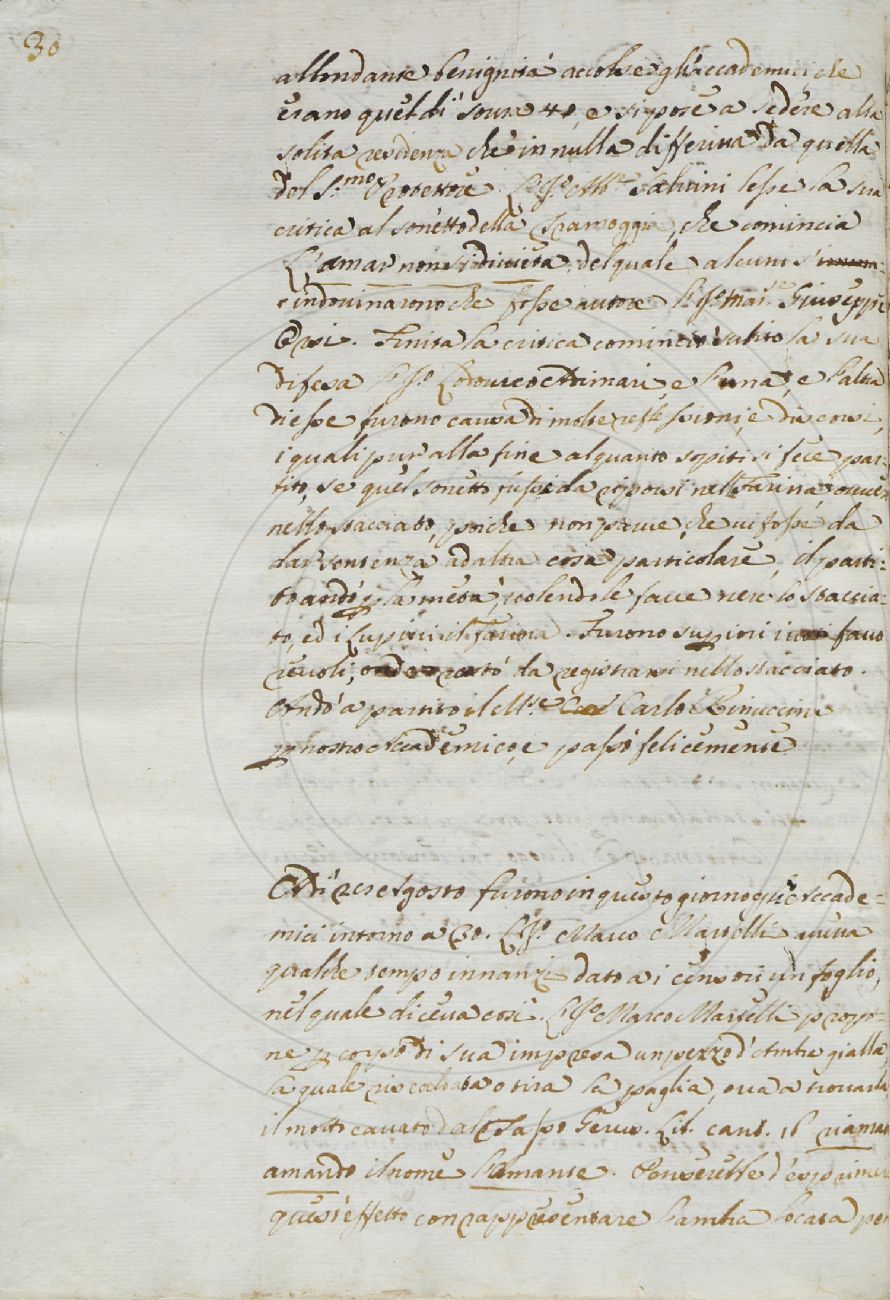 30
abbondante benignità accolse gl'Accademici, che
erano quel dì soura 40, e si pose a sedere alla
solita residenza che in nulla differiua da quella
del S.mo Protettore. Il S.r Ab.e Saluini lesse la sua
critica al sonetto della Scamoggia, che comincia
L'amar non si diuieta, del quale alcuni s'
indouinarono che fosse autore il S.r Mar.se Giuseppe
Orsi. Finita la critica cominciò subito la sua
difesa il S.r Lodouico Adimari, e l'una, e l'altra
di esse furono causa di molte reflessioni, e discorsi,
i quali pur alla fine alquanto sopiti si fece par=
tito, se quel sonetto fusse da riporsi nella Farina, ouuer
nello stacciato, poiche non parue, che ui fosse da
dar sentenza ad altra cosa particolare, il parti=
to andò p la meta, uolendo le faue nere lo staccia=
to, ed i Lupini la Farina. Furono superiori i uoti fauo
reuoli, onde restò da registrarsi nello stacciato.
Andò a partito il M.se Carlo Rinuccini
p nostro Accademico, e passò felicemente
Adì Agosto furono in questo giorno gli Accade=
mici intorno a 30. Il S.r Marco Martelli aueua
qualche tempo innanzi dato a i censori un foglio,
nel quale diceua così. Il S.r Marco Martelli propo=
ne p corpo di sua impresa un pezzo d'Ambra gialla,
la quale riscaldata o tira la paglia, o ua a trouarla
il motto cauato dal Tasso Gerus. Lib. cant. 16 riamar
amando il nome l'amante. Penserebbe d'esprimer
quest'effetto con rappresentare l'ambra locata per